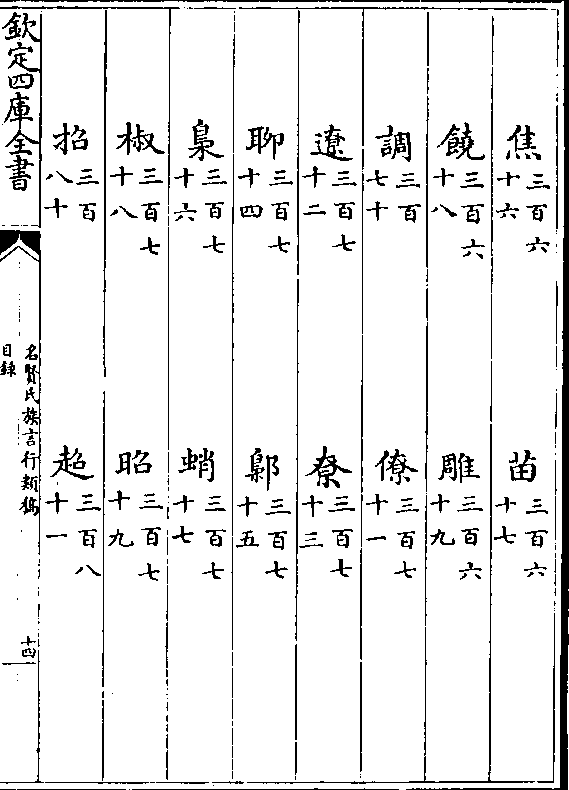 焦三百六十六　苗三百六十七
饒三百六十八　雕三百六十九
調三百七十　僚三百七十一
遼三百七十二　尞三百七十三
聊三百七十四　鄡三百七十五
梟三百七十六　蛸三百七十七
椒三百七十八　昭三百七十九
招三百八十　超三百八十一
欽定四庫全書
名賢氏族言行類稿
目錄
十四